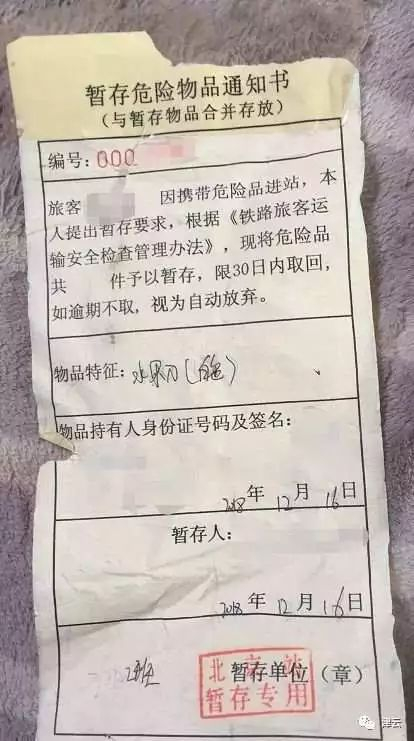 暂存危险物品通知书
(与暂存物品合并存放)
编号:000
旅客 因携带危险品进站,本
人提出暂存要求,根据《铁路旅客运
输安全检查管理办法》,现将危险品
共 件予以暂存,限30日内取回,
如逾期不取,视为自动放弃。
物品特征:水果刀(白色)
物品持有人身份证号码及签名:
2018年12月16日
暂存人:
2018年12月16日
班 暂存单位(章)
北京站
暂存专用
津云